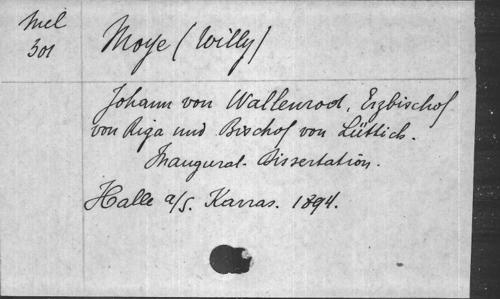 Mel
301
Moye (Willy)
Johann von Wallenrod, Erzbischof
von Riga und Bischof von Lüttich.
Inaugural-Dissertation.
Halle a/S. Karras. 1894.